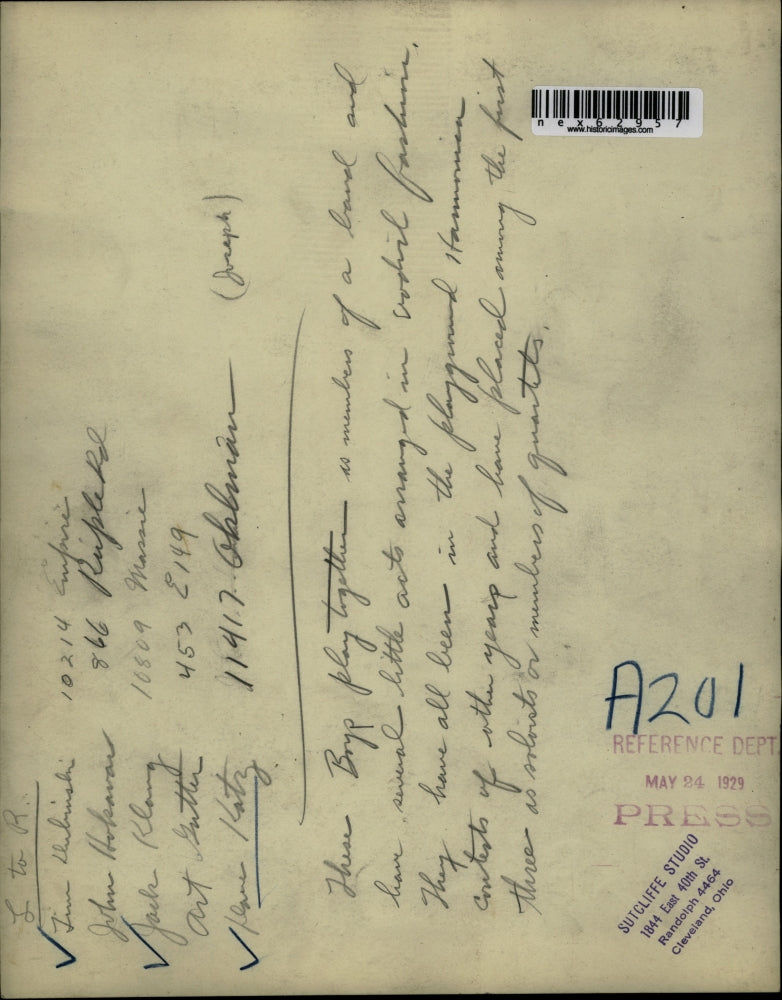 L to R.
10214 Empire
John 866 Ruple Rd
Jack Klang 10809 Massie
Art 453 E 149
Katz 11417 Ohlman (Joseph)
These Boys play together as members of a band and
have several little acts arranged in vodvil fashion.
They have all been in the playground Harmonica
contests of other years and have placed among the first
three as soloists or members of quartets.
nex62957
www.historicimages.com
A201
REFERENCE DEPT
MAY 24 1929
PRESS
SUTCLIFFE STUDIO
1844 East 40th St.
Randolph 4464
Cleveland, Ohio